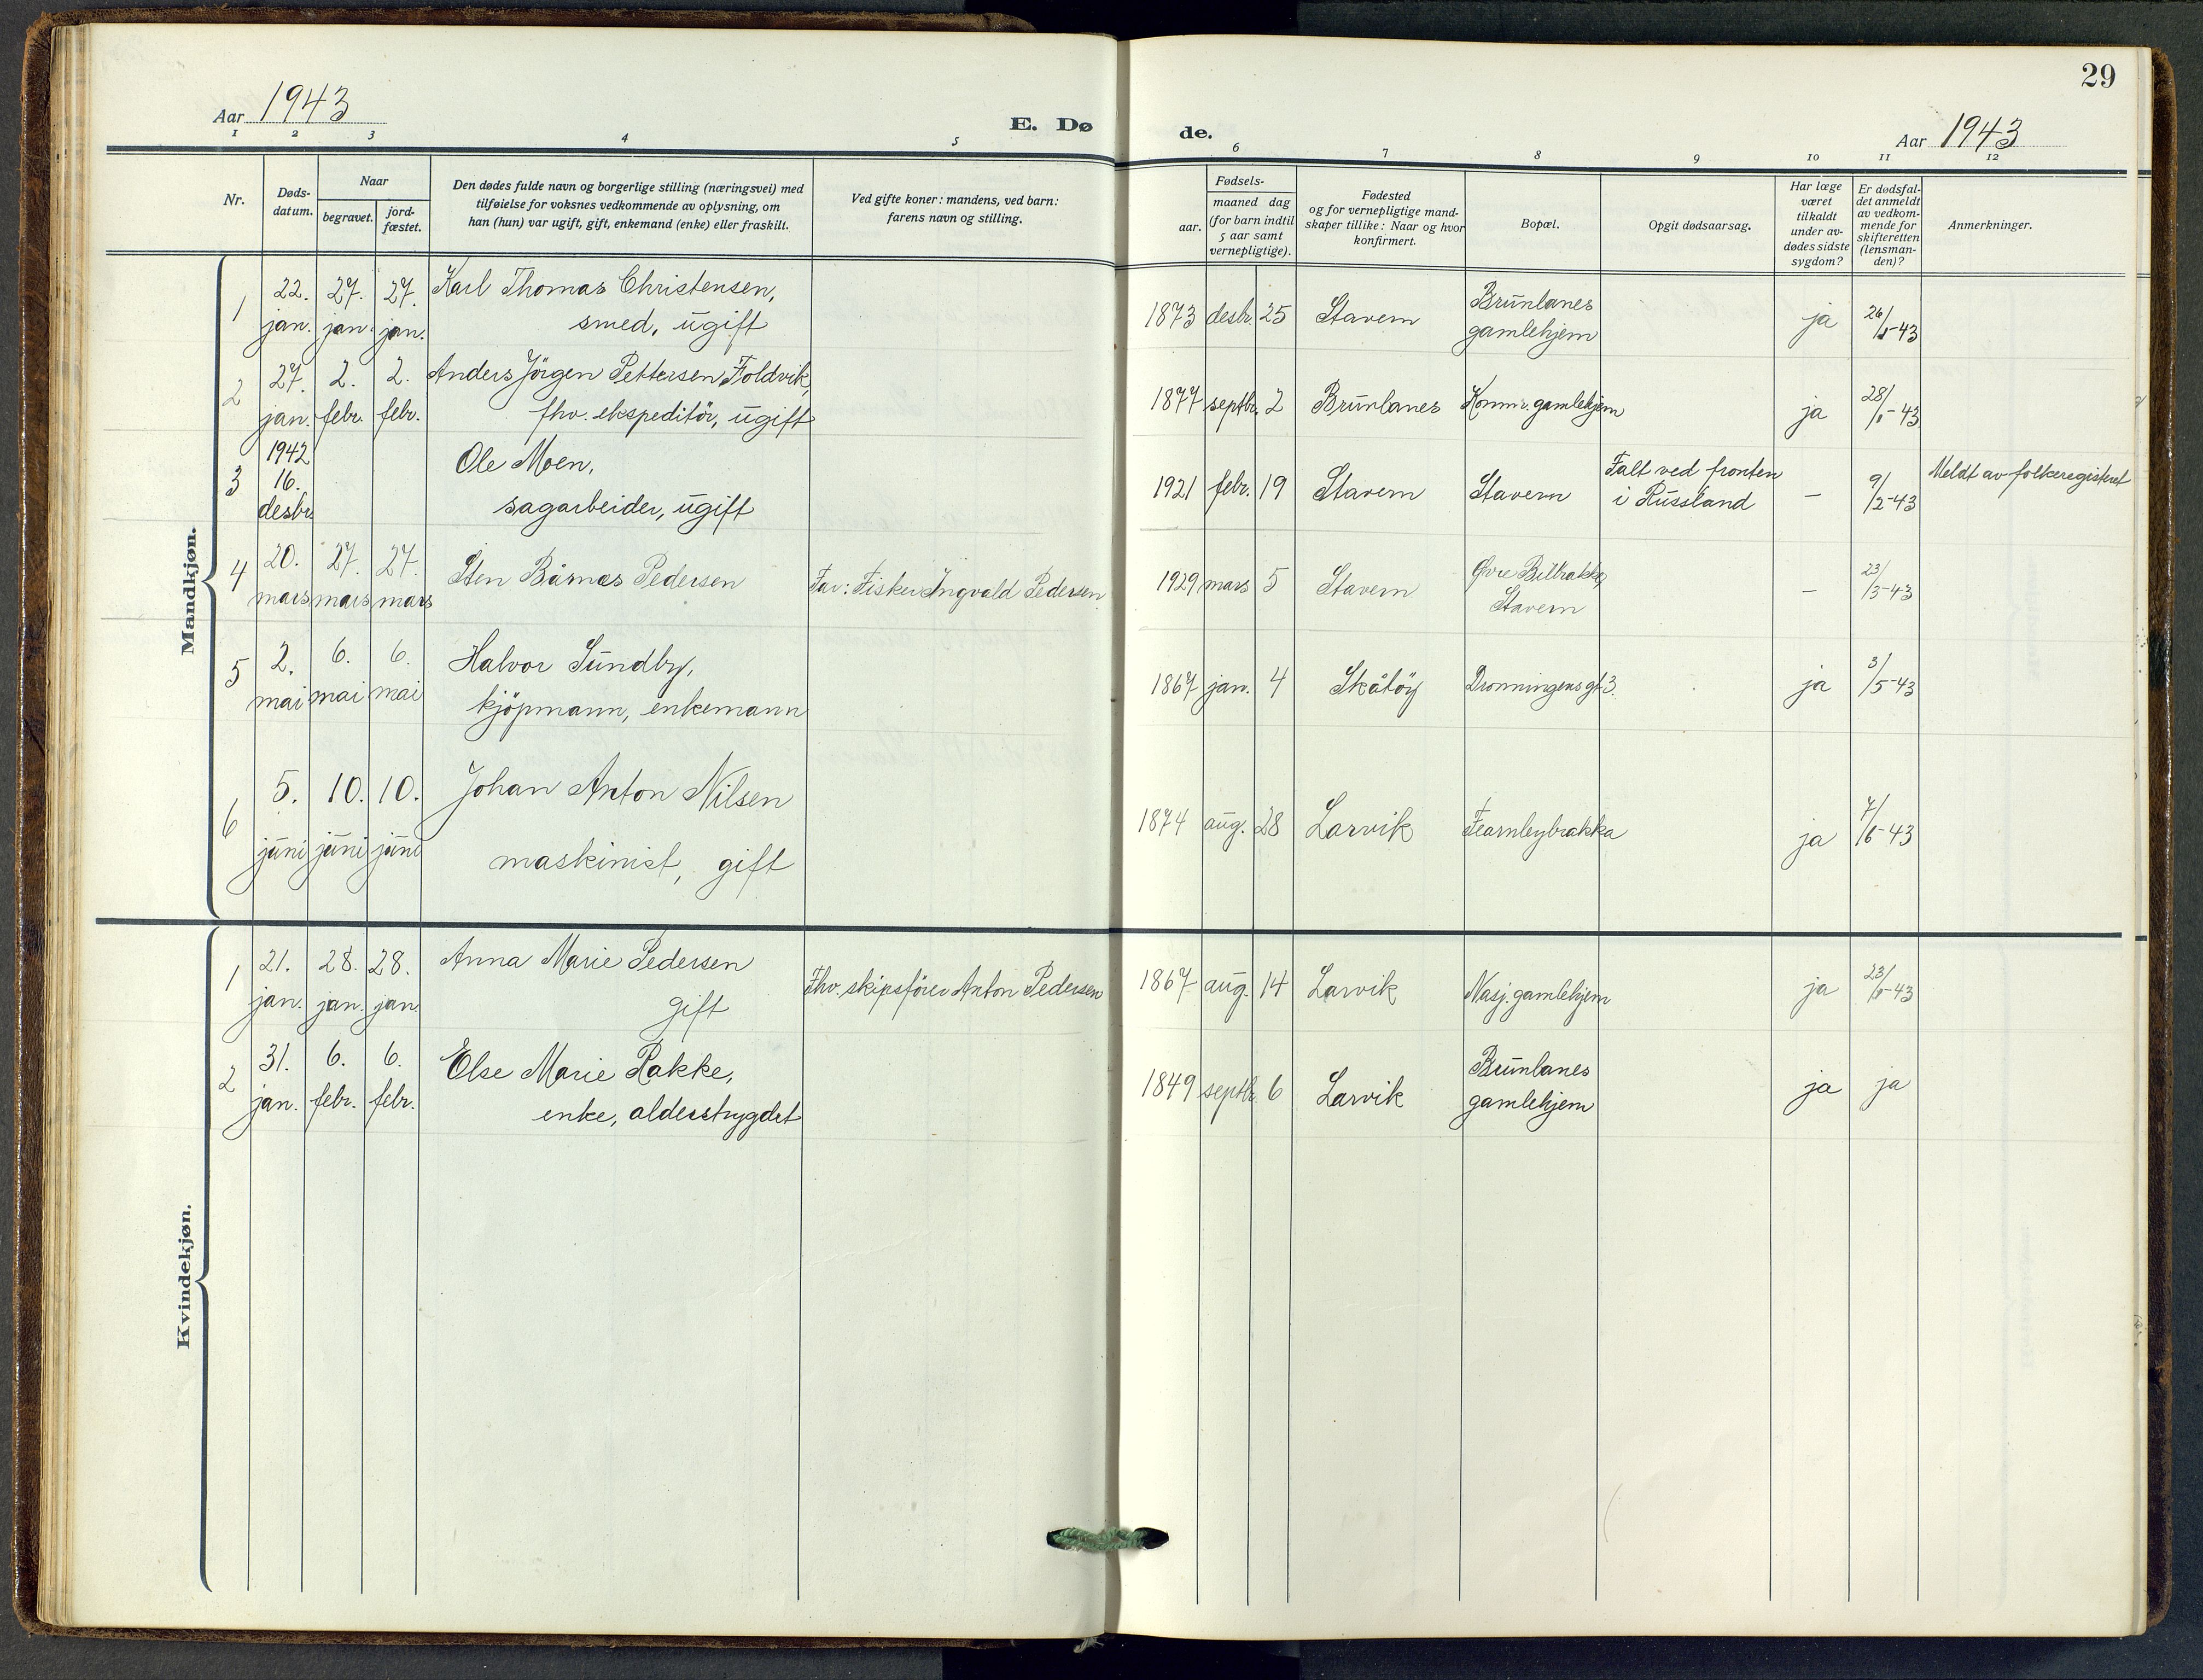 29
Aar 1943
E. Døde.
Aar 1943
1 2 3 4 5 6 7 8 9 10 11 12
Nr.
Døds-
datum.
Naar
begravet.
jord-
fæstet.
Den dødes fulde navn og borgerlige stilling (næringsvei) med
tilføielse for voksnes vedkommende av oplysning, om
han (hun) var ugift, gift, enkemand (enke) eller fraskilt.
Ved gifte koner: mandens, ved barn:
farens navn og stilling.
Fødsels-
aar.
maaned dag
(for barn indtil
5 aar samt
vernepligtige).
Fødested
og for vernepligtige mand-
skaper tillike: Naar og hvor
konfirmert.
Bopæl.
Opgit dødsaarsag.
Har læge
været
tilkaldt
under av-
dødes sidste
sygdom?
Er dødsfal-
det anmeldt
av vedkom-
mende for
skifteretten
(lensman-
den)?
Anmerkninger.
Mandkjøn.
1 22. jan. 27. jan. 27. jan. Karl Thomas Christensen,
smed, ugift
1873 desbr. 25 Stavern Brunlanes
gamlehjem
ja 26/1-43
2 27. jan. 2. febr. 2. febr. Anders Jörgen Pettersen Foldvik,
fhv. ekspeditör, ugift
1877 septbr. 2 Brunlanes Komm. gamlehjem ja 28/1-43
3 1942
16.
desbr.
Ole Moen,
sagarbeider, ugift
1921 febr. 19 Stavern Stavern Falt ved fronten
i Russland
– 9/2-43 Meldt av folkeregisteret
4 20. mars 27. mars 27. mars Sten Bårnas Pedersen Far: Fisker Ingvald Pedersen
1929 mars 5 Stavern Øvre Bilbrakke,
Stavern
– 23/3-43
5 2. mai 6. mai 6. mai Halvor Sundby,
kjöpmann, enkemann
1867 jan. 4 Skåtöy Dronningensgt 3. ja 3/5-43
6 5. juni 10. juni 10. juni Johan Anton Nilsen
maskinist, gift
1874 aug. 28 Larvik Fearnleybrakka ja 7/6-43
Kvindekjøn.
1 21. jan. 28. jan. 28. jan. Anna Marie Pedersen
gift
Fhv. skipsförer Anton Pedersen
1867 aug. 14 Larvik Nasj. gamlehjem ja 23/1-43
2 31. jan. 6. febr. 6. febr. Else Marie Rakke,
enke, alderstrygdet
1849 septbr. 6 Larvik Brunlanes
gamlehjem
ja ja